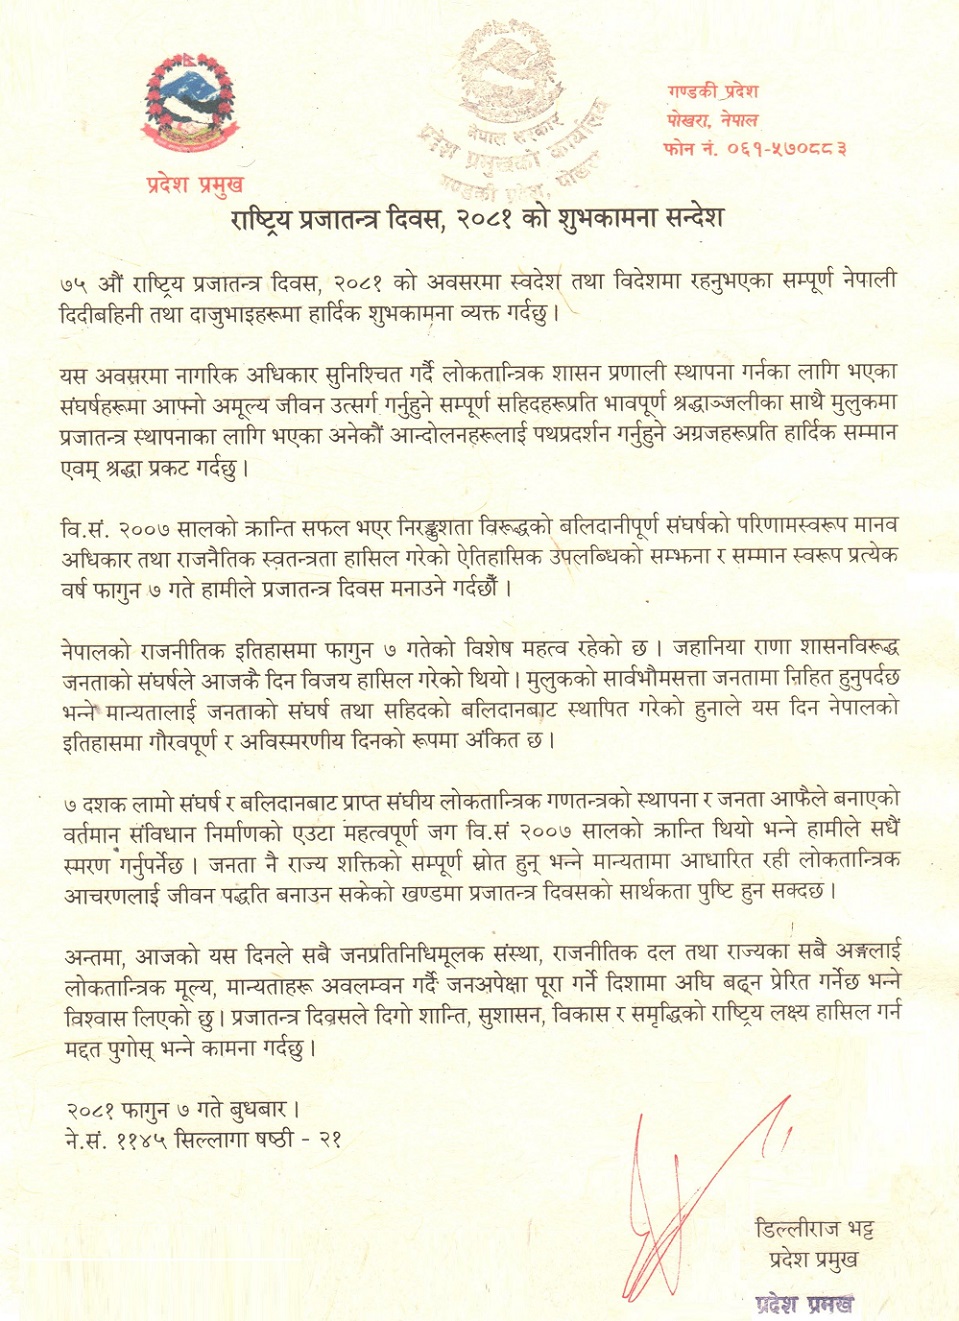 गण्डकी प्रदेश
पोखरा, नेपाल
फोन नं. ०६१-५७०८८३
प्रदेश प्रमुख
नेपाल सरकार
प्रदेश प्रमुखको कार्यालय
गण्डकी प्रदेश, पोखरा
राष्ट्रिय प्रजातन्त्र दिवस, २०८१ को शुभकामना सन्देश
७५ औं राष्ट्रिय प्रजातन्त्र दिवस, २०८१ को अवसरमा स्वदेश तथा विदेशमा रहनुभएका सम्पूर्ण नेपाली
दिदीबहिनी तथा दाजुभाइहरूमा हार्दिक शुभकामना व्यक्त गर्दछु ।
यस अवसरमा नागरिक अधिकार सुनिश्चित गर्दै लोकतान्त्रिक शासन प्रणाली स्थापना गर्नका लागि भएका
संघर्षहरूमा आफ्नो अमूल्य जीवन उत्सर्ग गर्नुहुने सम्पूर्ण सहिदहरूप्रति भावपूर्ण श्रद्धाञ्जलीका साथै मुलुकमा
प्रजातन्त्र स्थापनाका लागि भएका अनेकौं आन्दोलनहरूलाई पथप्रदर्शन गर्नुहुने अग्रजहरूप्रति हार्दिक सम्मान
एवम् श्रद्धा प्रकट गर्दछु ।
वि.सं. २००७ सालको क्रान्ति सफल भएर निरङ्कुशता विरूद्धको बलिदानीपूर्ण संघर्षको परिणामस्वरूप मानव
अधिकार तथा राजनैतिक स्वतन्त्रता हासिल गरेको ऐतिहासिक उपलब्धिको सम्झना र सम्मान स्वरूप प्रत्येक
वर्ष फागुन ७ गते हामीले प्रजातन्त्र दिवस मनाउने गर्दछौँ ।
नेपालको राजनीतिक इतिहासमा फागुन ७ गतेको विशेष महत्व रहेको छ । जहानिया राणा शासनविरूद्ध
जनताको संघर्षले आजकै दिन विजय हासिल गरेको थियो । मुलुकको सार्वभौमसत्ता जनतामा निहित हुनुपर्दछ
भन्ने मान्यतालाई जनताको संघर्ष तथा सहिदको बलिदानबाट स्थापित गरेको हुनाले यस दिन नेपालको
इतिहासमा गौरवपूर्ण र अविस्मरणीय दिनको रूपमा अंकित छ ।
७ दशक लामो संघर्ष र बलिदानबाट प्राप्त संघीय लोकतान्त्रिक गणतन्त्रको स्थापना र जनता आफैले बनाएको
वर्तमान संविधान निर्माणको एउटा महत्वपूर्ण जग वि.सं २००७ सालको क्रान्ति थियो भन्ने हामीले सधैं
स्मरण गर्नुपर्नेछ । जनता नै राज्य शक्तिको सम्पूर्ण स्रोत हुन् भन्ने मान्यतामा आधारित रही लोकतान्त्रिक
आचरणलाई जीवन पद्धति बनाउन सकेको खण्डमा प्रजातन्त्र दिवसको सार्थकता पुष्टि हुन सक्दछ ।
अन्तमा, आजको यस दिनले सबै जनप्रतिनिधिमूलक संस्था, राजनीतिक दल तथा राज्यका सबै अङ्गलाई
लोकतान्त्रिक मूल्य, मान्यताहरू अवलम्वन गर्दै जनअपेक्षा पूरा गर्ने दिशामा अघि बढ्न प्रेरित गर्नेछ भन्ने
विश्वास लिएको छु । प्रजातन्त्र दिवसले दिगो शान्ति, सुशासन, विकास र समृद्धिको राष्ट्रिय लक्ष्य हासिल गर्न
मद्दत पुगोस् भन्ने कामना गर्दछु ।
२०८१ फागुन ७ गते बुधबार ।
ने.सं. ११४५ सिल्लागा षष्ठी - २१
डिल्लीराज भट्ट
प्रदेश प्रमुख
प्रदेश प्रमुख